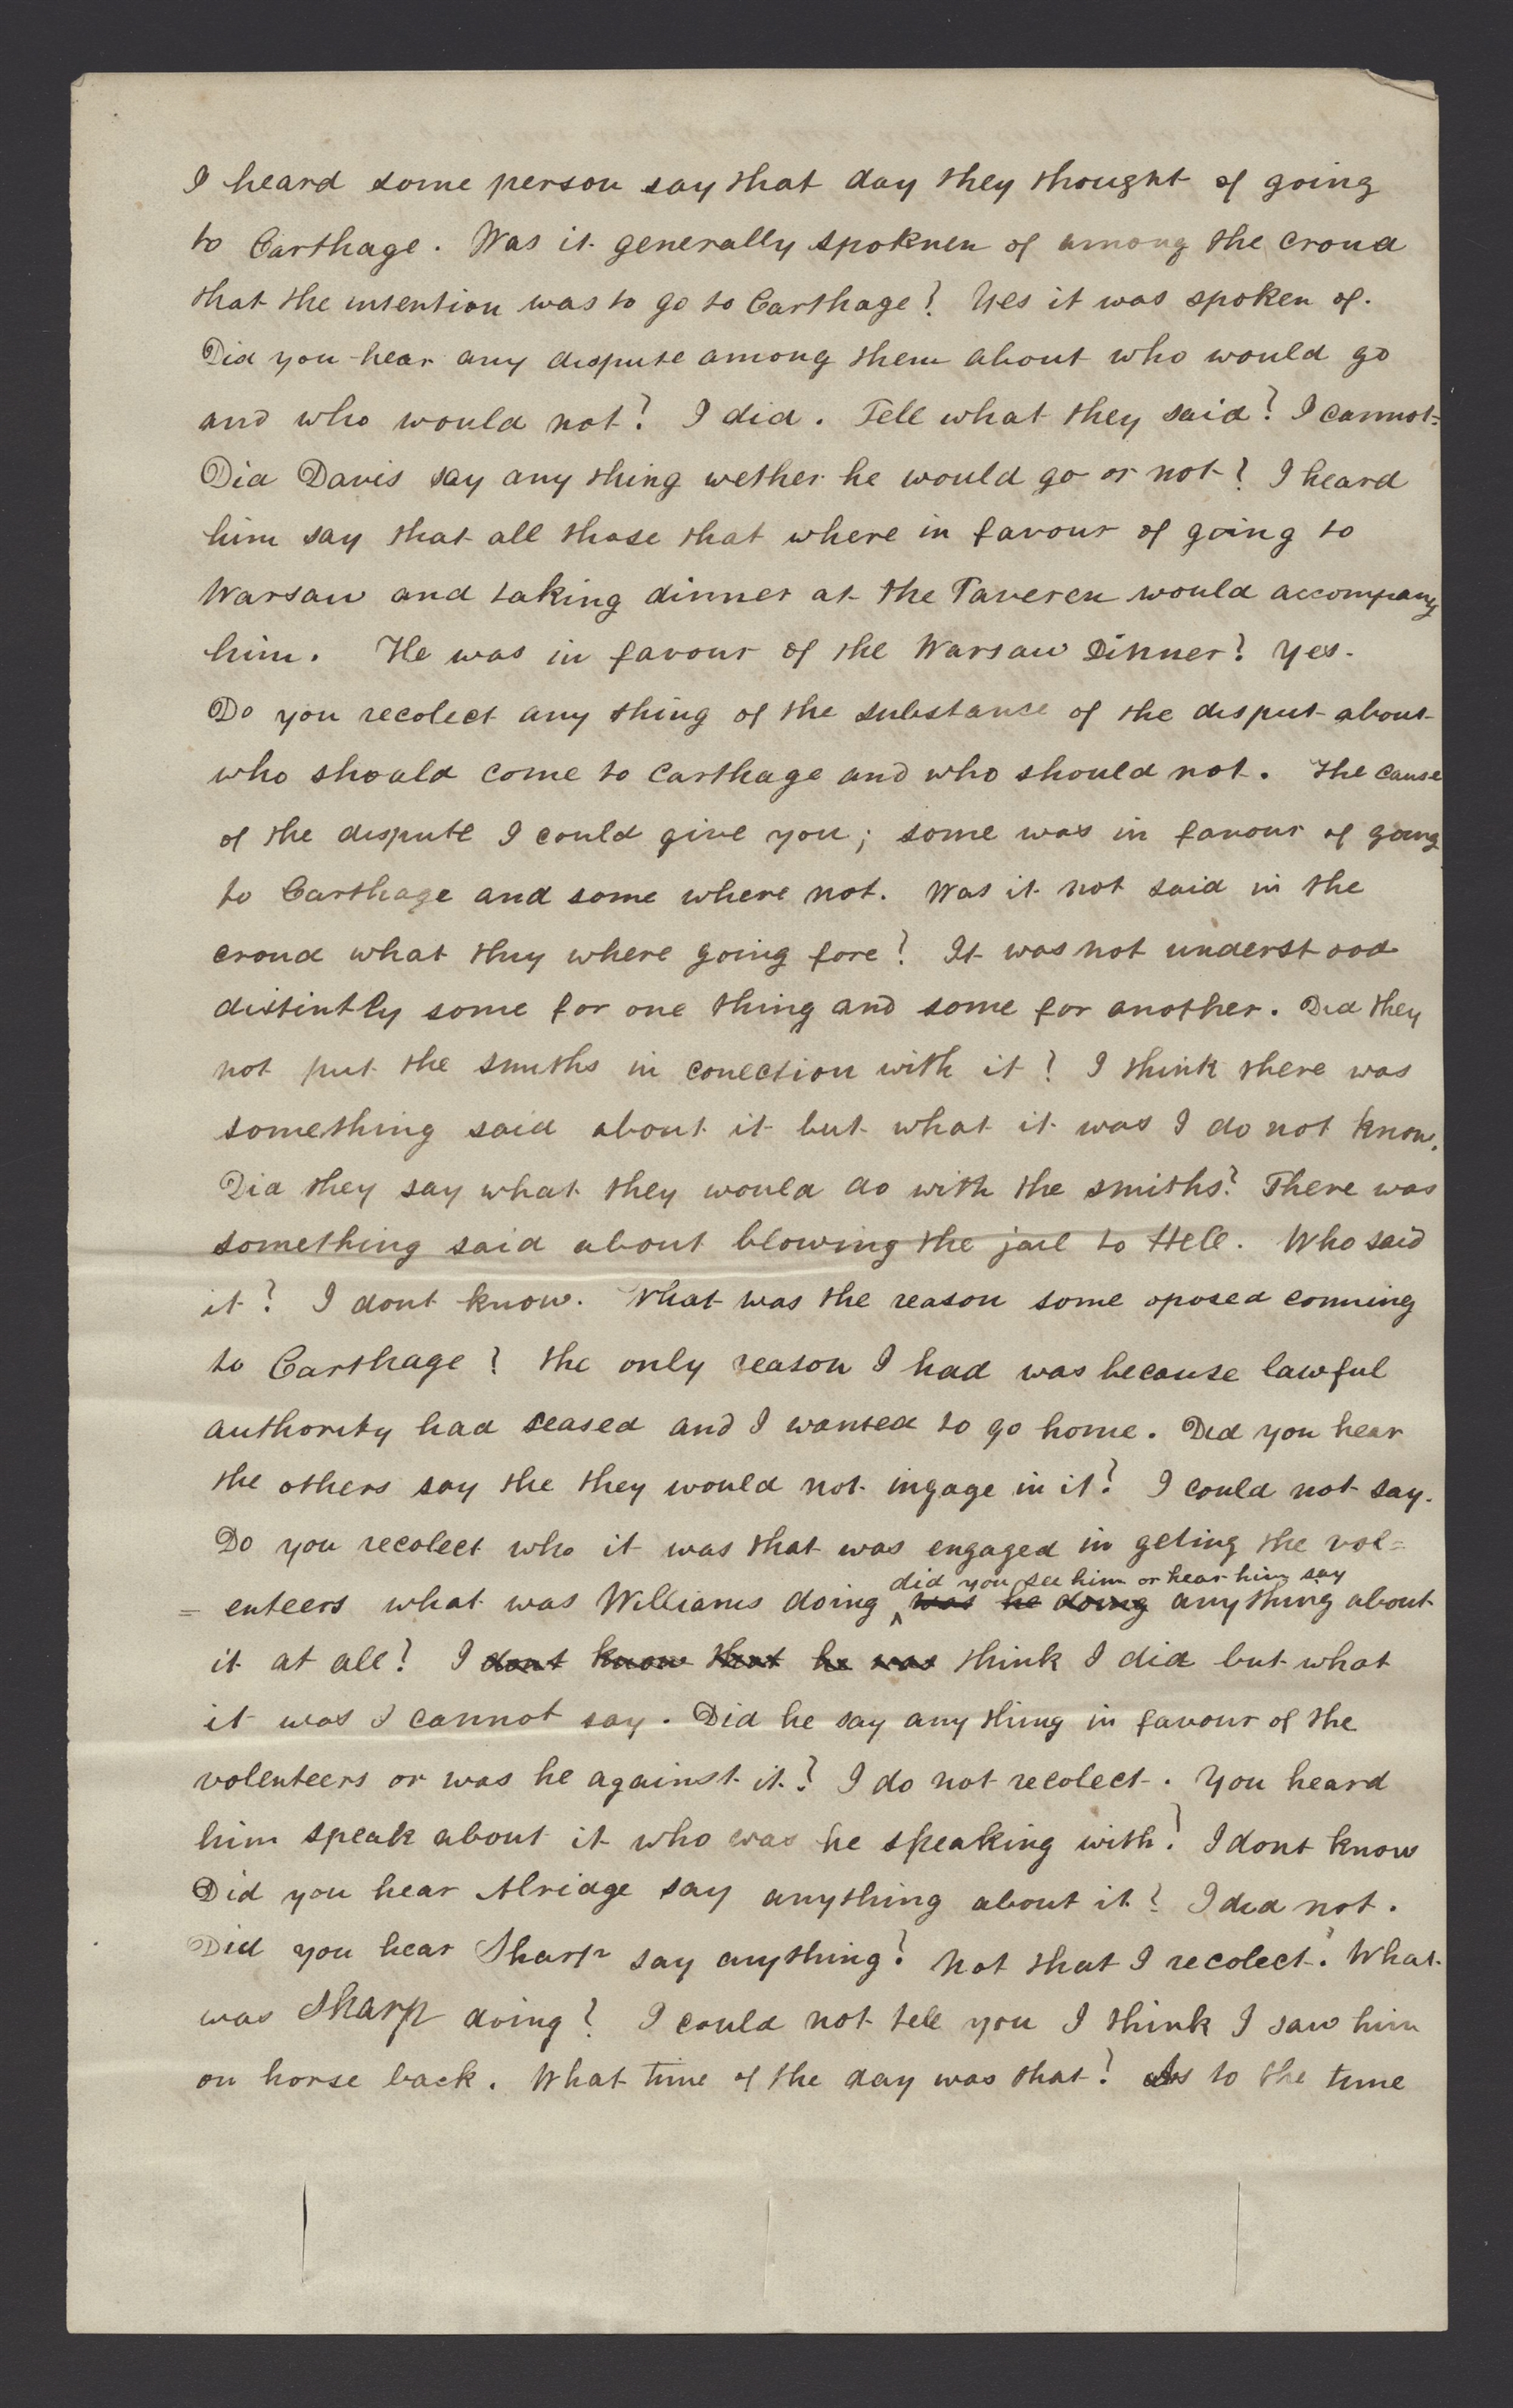 I heard some person say that day they thought of going
to Carthage. Was it generally spoknen of among the croud
that the intention was to go to Carthage? Yes it was spoken of.
Did you hear any dispute among them about who would go
and who would not? I did. Tell what they said? I cannot.
Did Davis say any thing wether he would go or not? I heard
him say that all those that where in favour of going to
Warsaw and taking dinner at the Taveren would accompany
him. He was in favour of the Warsaw Dinner? Yes.
Do you recolect any thing of the substance of the disput about
who should come to Carthage and who should not. The cause
of the dispute I could give you; some was in favour of going
to Carthage and some where not. Was it not said in the
croud what they where going fore? It was not understood
distintly some for one thing and some for another. Did they
not put the smiths in conection with it? I think there was
something said about it but what it was I do not know.
Did they say what they would do with the smiths? There was
something said about blowing the jail to Hell. Who said
it? I dont know. What was the reason some oposed comming
to Carthage? the only reason I had was because lawful
authority had seased and I wanted to go home. Did you hear
the others say the they would not ingage in it? I could not say.
Do you recolect who it was that was engaged in geting the vol=
did you see him or hear him say
= enteers what was Williams doing ^ was he doing anything about
it at all? I dont know that he was think I did but what
it was I cannot say. Did he say any thing in favour of the
volenteers or was he against it? I do not recolect. You heard
him speak about it who was he speaking with? I dont know
Did you hear Alridge say anything about it? I did not.
Did you hear Sharp say anything? Not that I recolect. What
was Sharp doing? I could not tell you I think I saw him
on horse back. What time of the day was that? As to the time